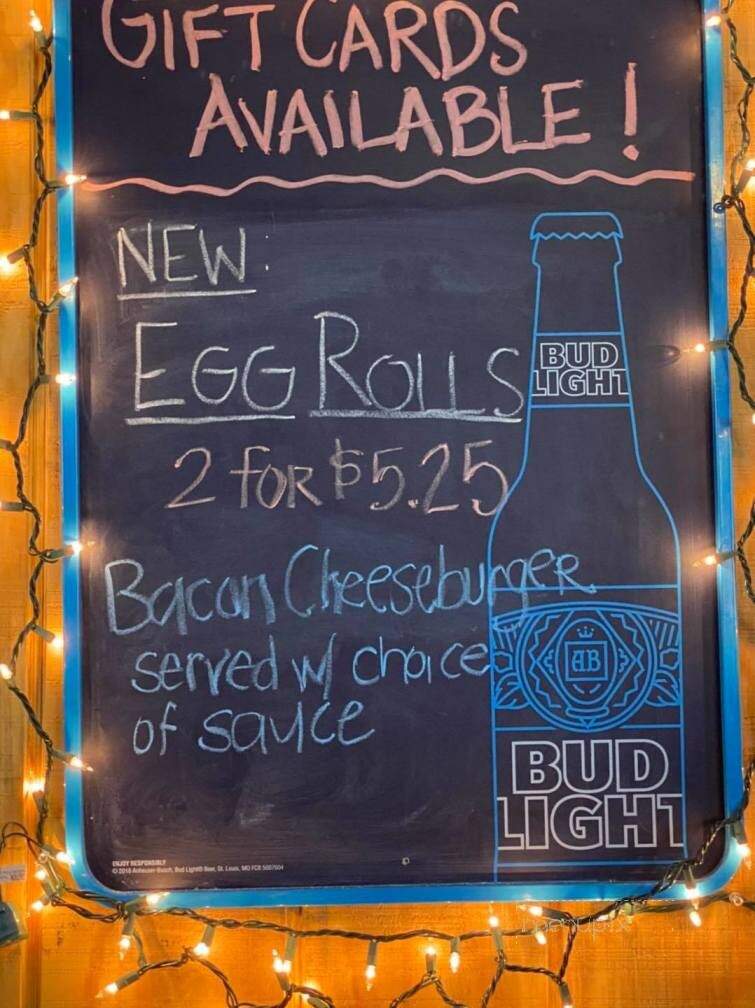 GIFT CARDS
AVAILABLE!
NEW:
EGG ROLLS
2 FOR $5.25
Bacon Cheeseburger
served w/ choice
of sauce
BUD
LIGHT
AB
BUD
LIGHT
ENJOY RESPONSIBLY
© 2018 Anheuser-Busch, Bud Light® Beer, St. Louis, MO